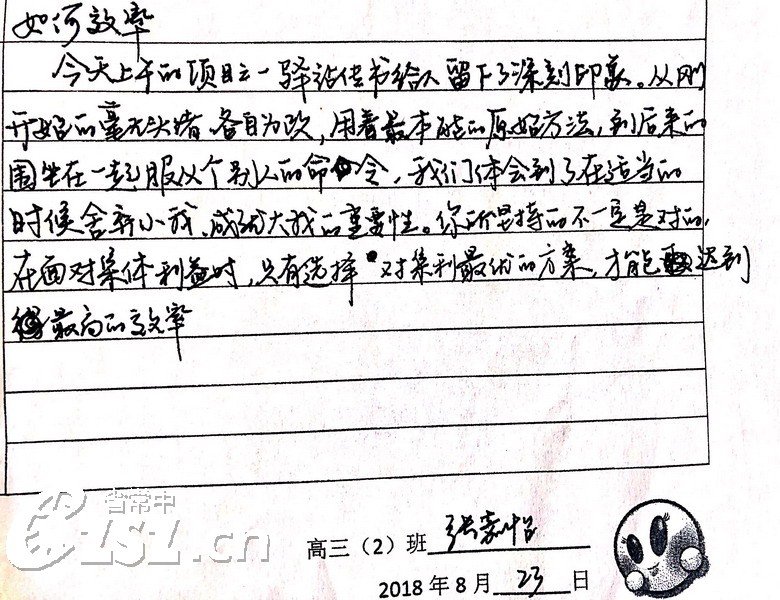 如何效率
今天上午的项目之一驿站传书给人留下了深刻印象。从刚
开始的毫无头绪、各自为政,用着最本能的原始方法,到后来的
围坐在一起服从个别人的命令,我们体会到了在适当的
时候舍弃小我、成就大我的重要性。你所坚持的不一定是对的,
在面对集体利益时,只有选择对集利最优的方案,才能达到
最高的效率
省常中
CZSLZ.cn
高三(2)班 张嘉怡
2018年8月23日